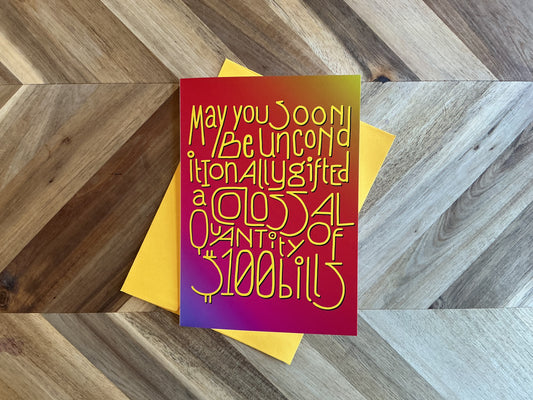 May you soon
Be uncond
itionally gifted
a COLOSSAL
QUANTITY of
$100 bills